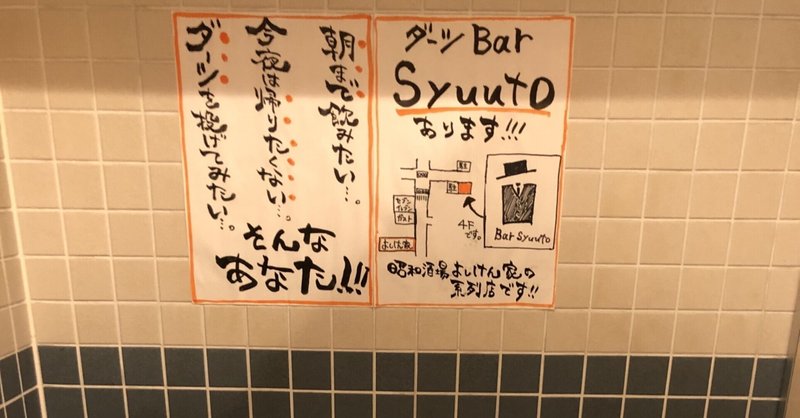 朝まで飲みたい…。
今夜は帰りたくない…。
ダーツを投げてみたい…。
そんな
あなた!!!
ダーツ Bar
Syuuto
あります!!!
駐
駐
セブン
イレブン
ガスト
よしけん家
4F
です。
Bar Syuuto
昭和酒場よしけん家の
系列店です!!